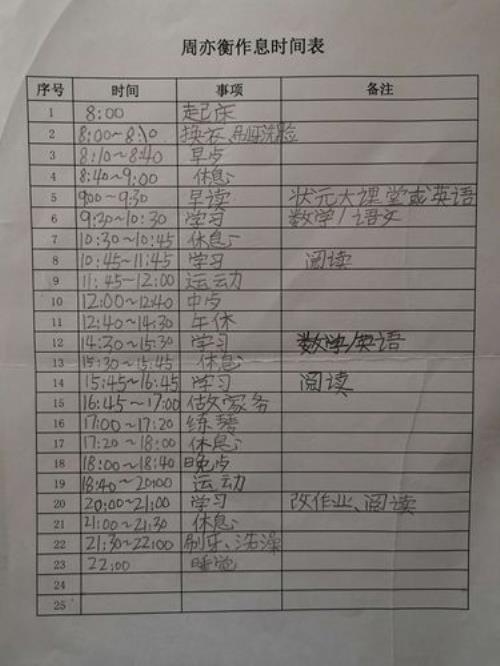 周亦衡作息时间表
序号 时间 事项 备注
1 8:00 起床
2 8:00~8:10 换衣、刷牙洗脸
3 8:10~8:40 早点
4 8:40~9:00 休息
5 9:00~9:30 早读 状元大课堂或英语
6 9:30~10:30 学习 数学/语文
7 10:30~10:45 休息
8 10:45~11:45 学习 阅读
9 11:45~12:00 运动
10 12:00~12:40 中点
11 12:40~14:30 午休
12 14:30~15:30 学习 数学/英语
13 15:30~15:45 休息
14 15:45~16:45 学习 阅读
15 16:45~17:00 做家务
16 17:00~17:20 练琴
17 17:20~18:00 休息
18 18:00~18:40 晚点
19 18:40~20:00 运动
20 20:00~21:00 学习 改作业、阅读
21 21:00~21:30 休息
22 21:30~22:00 刷牙、洗澡
23 22:00 睡觉
24
25